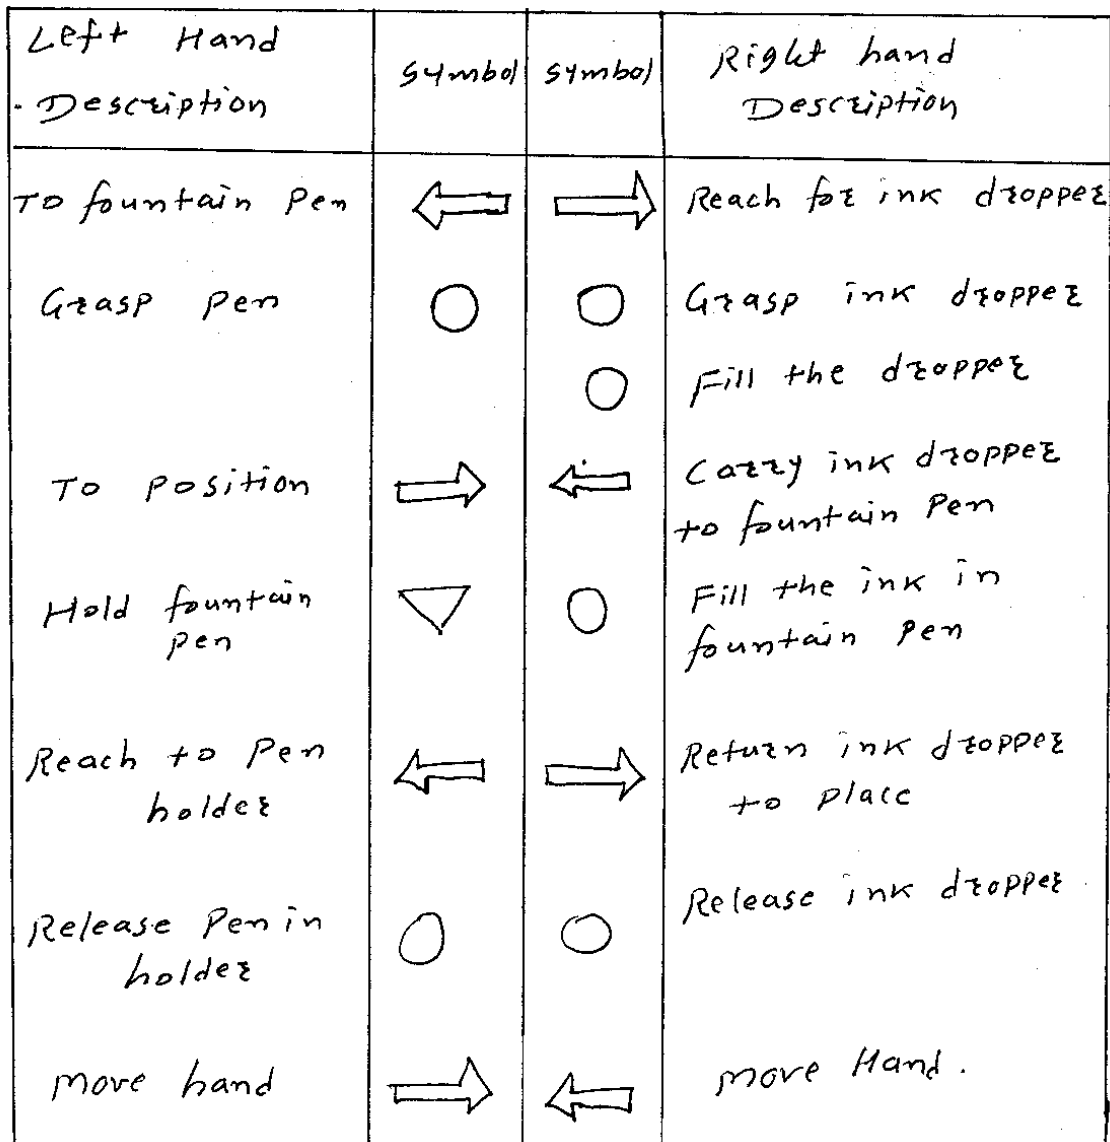 Left Hand
Description
Symbol
Symbol
Right hand
Description
To fountain Pen
Reach for ink dropper
Grasp pen
Grasp ink dropper
Fill the dropper
To position
Carry ink dropper
to fountain Pen
Hold fountain
pen
Fill the ink in
fountain Pen
Reach to Pen
holder
Return ink dropper
to place
Release Pen in
holder
Release ink dropper
move hand
move Hand.